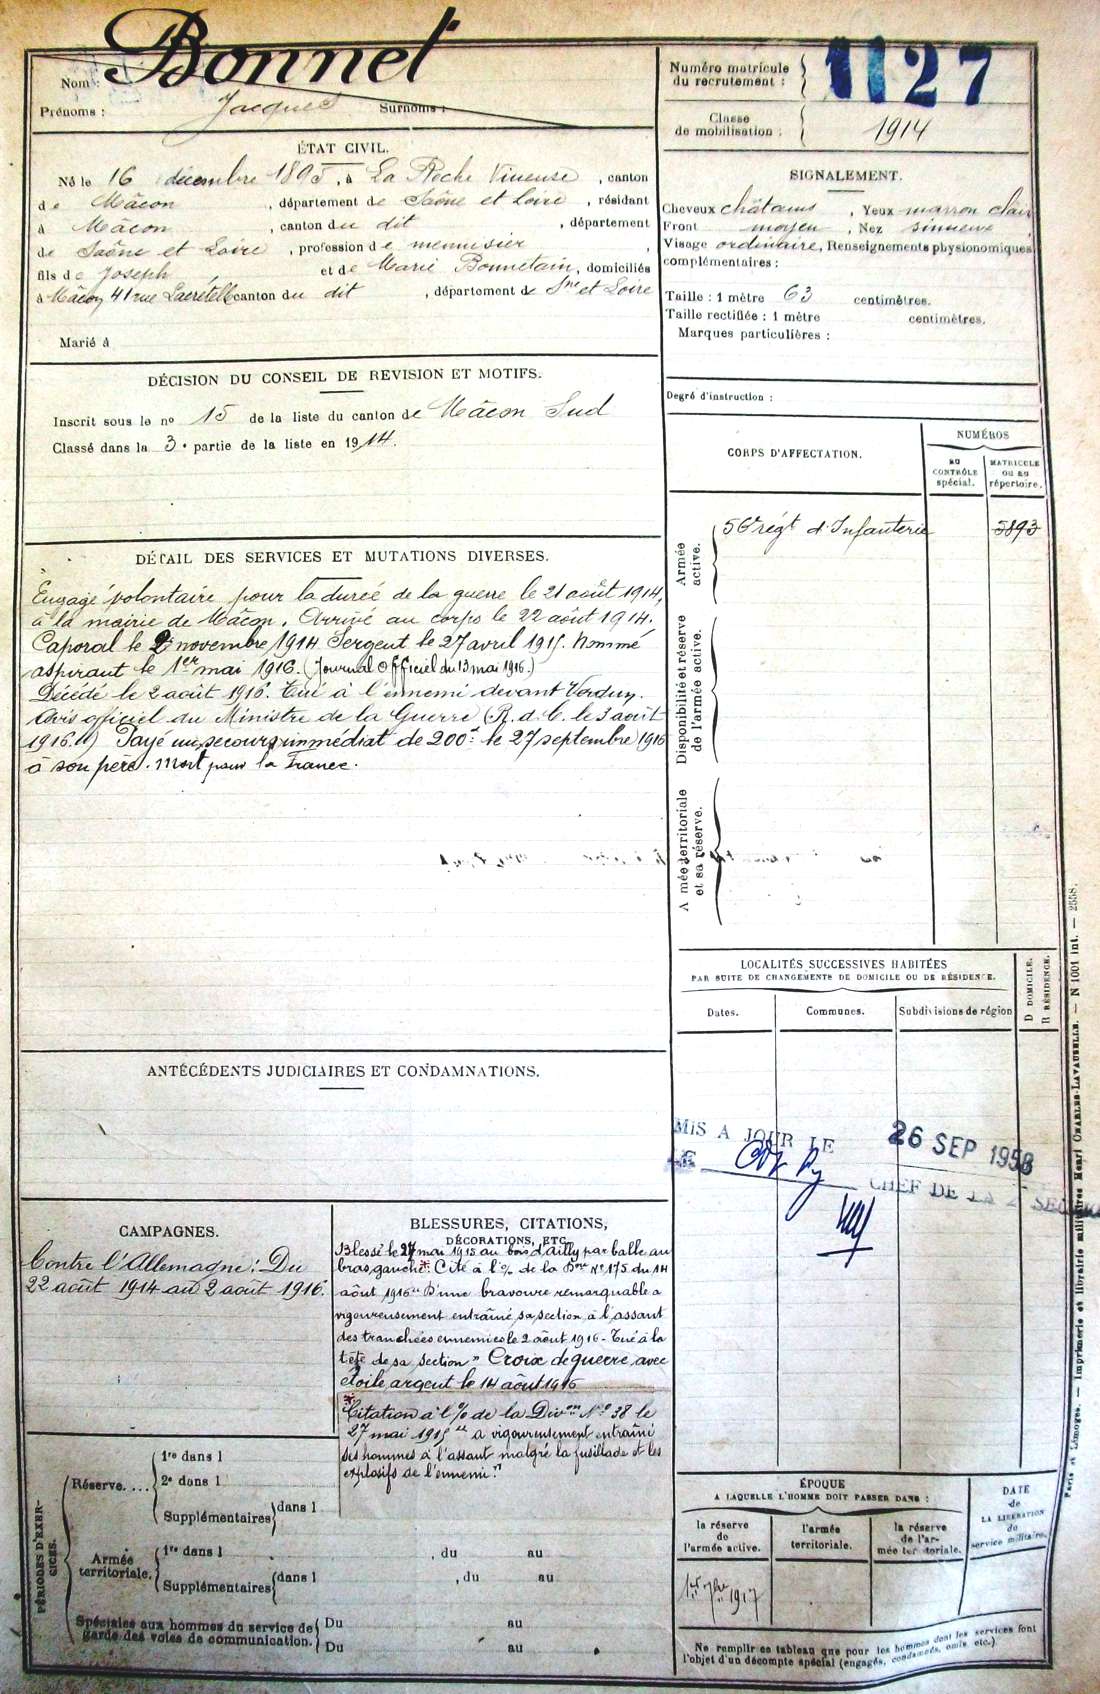 Nom : Bonnet
Prénoms : Jacques Surnoms :
Numéro matricule du recrutement : 1127
Classe de mobilisation : 1914
ÉTAT CIVIL.
Né le 16 décembre 1895, à La Roche Vineuse, canton
de Mâcon, département de Saône et Loire, résidant
à Mâcon, canton du dit, département
de Saône et Loire, profession de menuisier,
fils de Joseph et de Marie Bonnetain, domiciliés
à Mâcon 41 rue Lacretelle canton du dit, département de Sne et Loire
Marié à
SIGNALEMENT.
Cheveux châtains, Yeux marron clair
Front moyen, Nez sinueux
Visage ordinaire, Renseignements physionomiques
complémentaires :
Taille : 1 mètre 63 centimètres.
Taille rectifiée : 1 mètre centimètres.
Marques particulières :
Degré d'instruction :
DÉCISION DU CONSEIL DE REVISION ET MOTIFS.
Inscrit sous le no 15 de la liste du canton de Mâcon Sud
Classé dans la 3e partie de la liste en 1914.
CORPS D'AFFECTATION.
NUMÉROS
AU CONTRÔLE spécial.
MATRICULE OU AU répertoire.
Armée active.
56e régt d'Infanterie 5893
Disponibilité et réserve de l'armée active.
Armée territoriale et sa réserve.
DÉTAIL DES SERVICES ET MUTATIONS DIVERSES.
Engagé volontaire pour la durée de la guerre le 21 août 1914,
à la mairie de Mâcon. Arrivé au corps le 22 août 1914.
Caporal le 2 novembre 1914 Sergent le 27 avril 1915. Nommé
aspirant le 1er mai 1916. (Journal Officiel du 13 mai 1916.)
Décédé le 2 août 1916. Tué à l'ennemi devant Verdun.
Avis officiel du Ministre de la Guerre (R. d. C. le 3 août
1916.) Payé un secours immédiat de 200f le 27 septembre 1916
à son père. Mort pour la France.
LOCALITÉS SUCCESSIVES HABITÉES
PAR SUITE DE CHANGEMENTS DE DOMICILE OU DE RÉSIDENCE.
Dates. Communes. Subdivisions de région
D DOMICILE.
R RÉSIDENCE.
ANTÉCÉDENTS JUDICIAIRES ET CONDAMNATIONS.
MIS A JOUR LE 26 SEP 1958
LE CHEF DE LA 2 SECTION
CAMPAGNES.
Contre l'Allemagne : Du
22 août 1914 au 2 août 1916.
BLESSURES, CITATIONS,
DÉCORATIONS, ETC.
Blessé le 27 mai 1915 au bois d'Ailly par balle au
bras gauche * Cité à l'% de la Don No 175 du 14
août 1916 "D'une bravoure remarquable a
vigoureusement entraîné sa section à l'assaut
des tranchées ennemies le 2 août 1916 - Tué à la
tête de sa section" Croix de guerre avec
étoile argent le 14 août 1916
* Citation à l'% de la Divon No 38 le
27 mai 1915 "a vigoureusement entraîné
ses hommes à l'assaut malgré la fusillade et les
explosifs de l'ennemi."
PÉRIODES D'EXERCICES.
Réserve. ....
1re dans l
2e dans l
Supplémentaires dans l
Armée territoriale.
1re dans l , du au
Supplémentaires dans l , du au
Spéciales aux hommes du service de garde des voies de communication. Du au
Du au
ÉPOQUE
A LAQUELLE L'HOMME DOIT PASSER DANS :
la réserve de l'armée active.
l'armée territoriale.
la réserve de l'armée territoriale.
DATE de LA LIBÉRATION du service militaire.
1er 7bre 1917
Ne remplir ce tableau que pour les hommes dont les services font
l'objet d'un décompte spécial (engagés, condamnés, omis etc.)
Paris et Limoges. — Imprimerie et librairie militaires Henri CHARLES-LAVAUZELLE. — N 1001 int. — 2558.